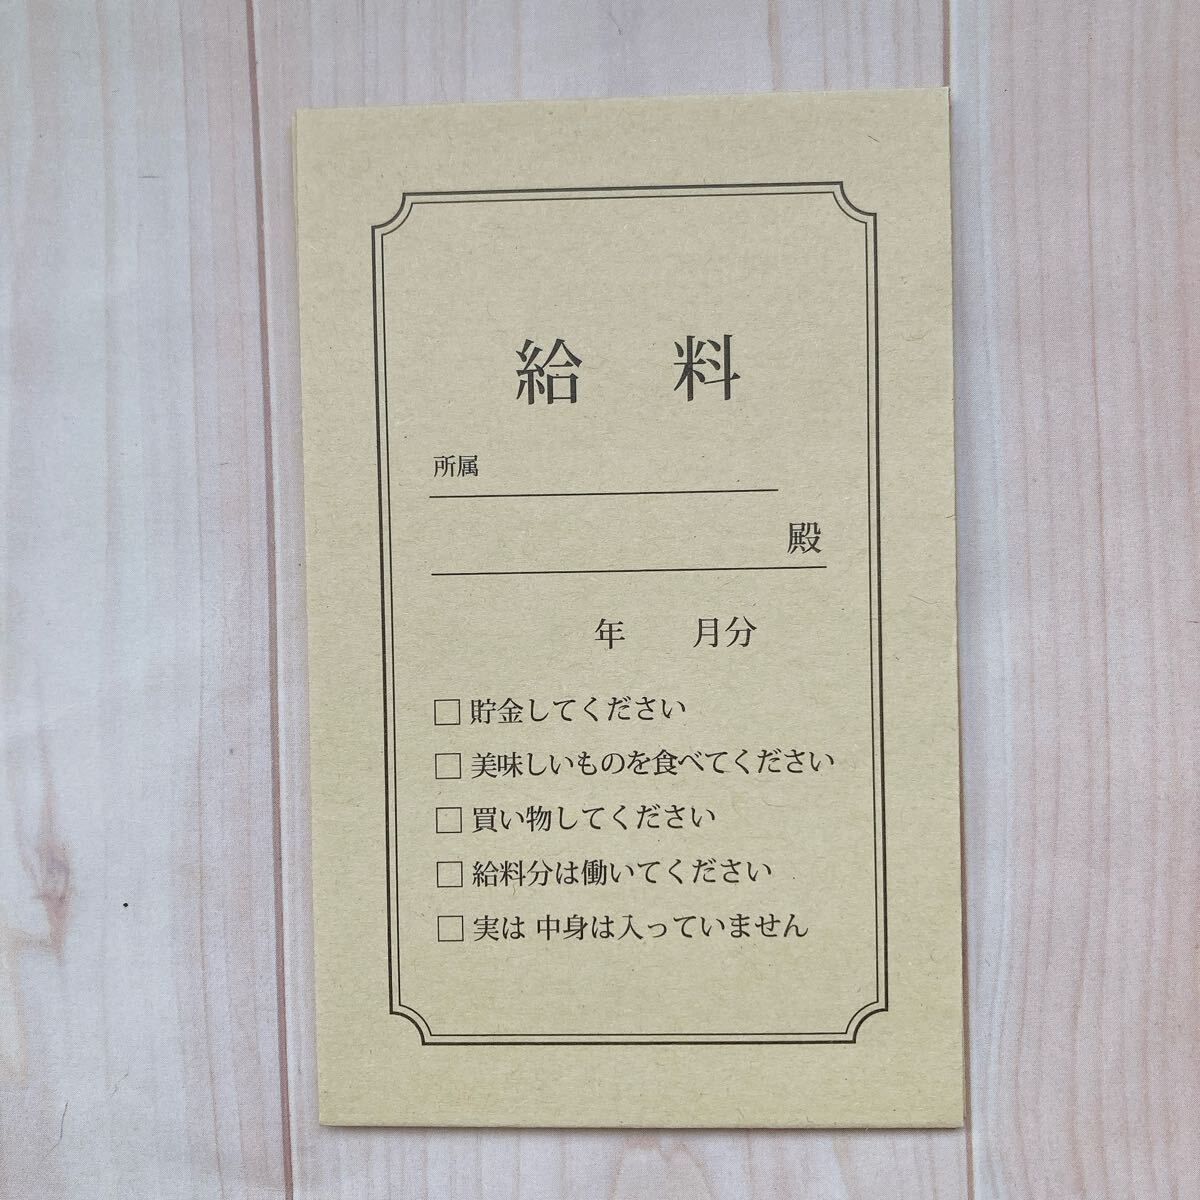 給 料
所属
殿
年 月分
□ 貯金してください
□ 美味しいものを食べてください
□ 買い物してください
□ 給料分は働いてください
□ 実は 中身は入っていません